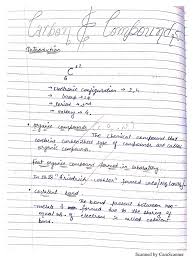 Carbon & Compounds
Introduction
C
→ electronic configuration → 2, 4
→ group → 14
→ period → 2nd
→ valency → 4.
• organic compounds
The chemical compound that
type of compounds are called
organic compounds.
First organic compound formed in laboratory
In 1828 "Friedrich wohler" formed urea
• covalent bond
The bond present between non-
metals & non formed due to the sharing of
equal no. of electron is called covalent
bond.
Scanned by CamScanner